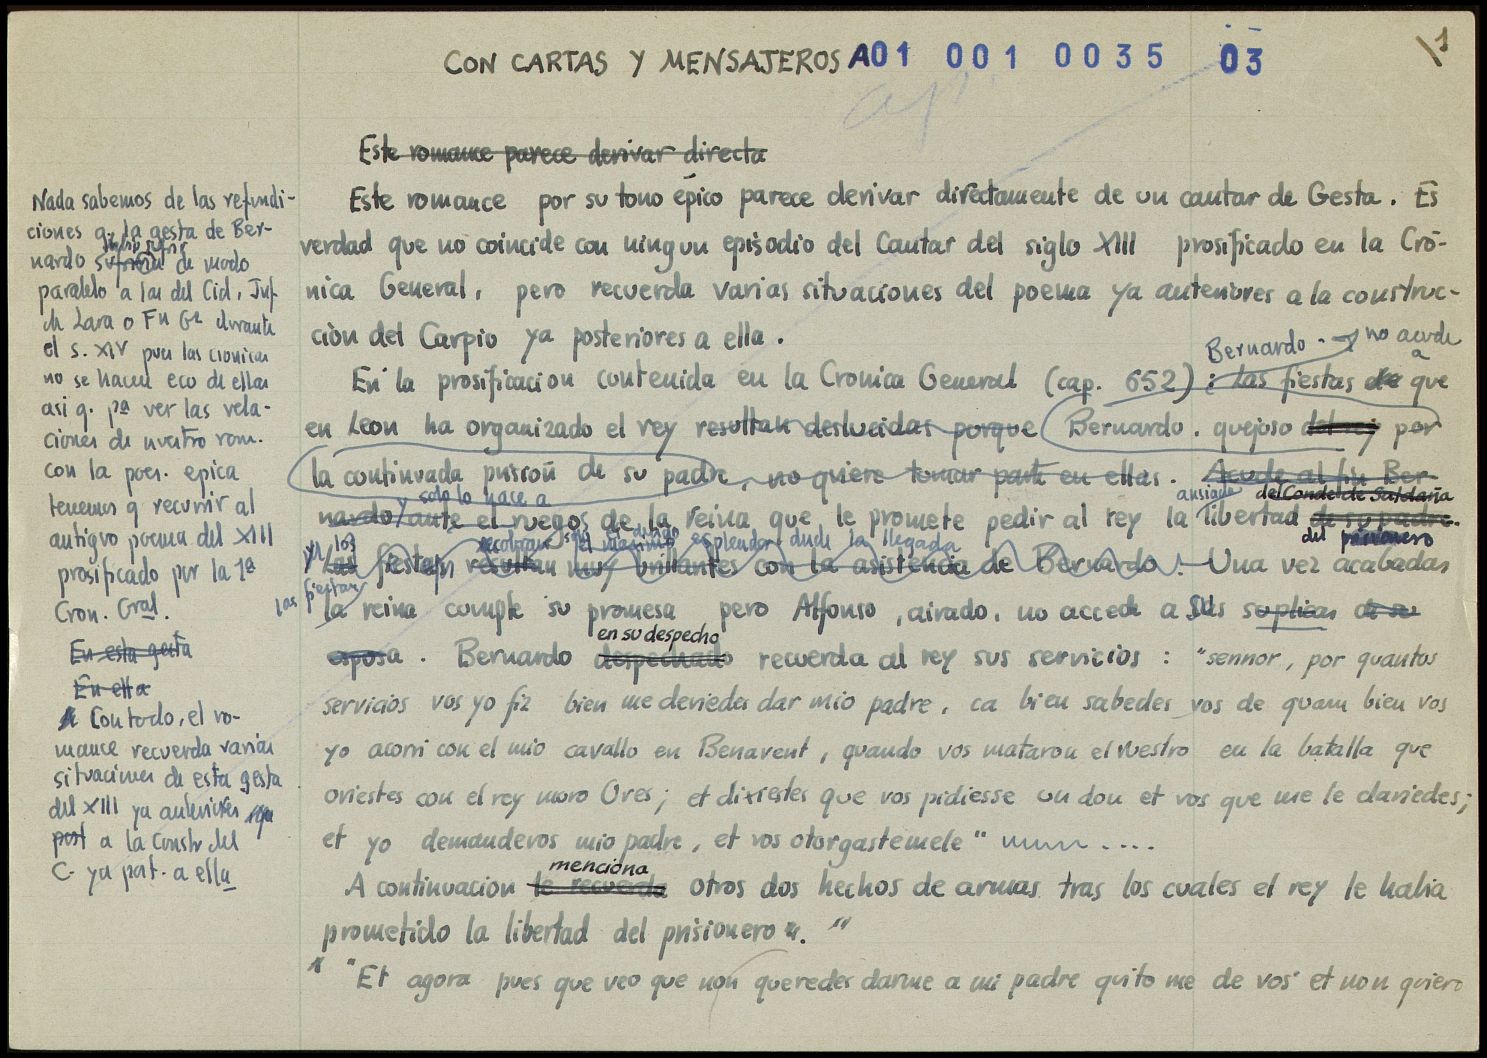 CON CARTAS Y MENSAJEROS A01 001 0035 03
1
Este romance parece derivar directa
Este romance por su tono épico parece derivar directamente de un cantar de Gesta. Es
verdad que no coincide con ningun episodio del Cantar del siglo XIII prosificado en la Cró-
nica General, pero recuerda varias situaciones del poema ya anteriores a la construc-
ción del Carpio ya posteriores a ella.
Bernardo no acude a
En la prosificacion contenida en la Cronica General (cap. 652): las fiestas que
en Leon ha organizado el rey resultan deslucidas porque Bernardo, quejoso del rey por
la continuada prision de su padre, no quiere tomar parte en ellas. Acude al fin Ber-
y solo lo hace a
ansiada del Conde de Saldaña
nardo ante el ruegos de la reina que le promete pedir al rey la libertad de su padre.
del prisionero
recobran esplendor desde la llegada
y las fiestas resultan muy brillantes con la asistencia de Bernardo. Una vez acabadas
las fiestas
la reina cumple su promesa pero Alfonso, airado, no accede a sus suplicas de su
en su despecho
esposa. Bernardo despechado recuerda al rey sus servicios: "sennor, por quantos
servicios vos yo fiz bien me deviedes dar mio padre, ca bien sabedes vos de quam bien vos
yo acorri con el mio cavallo en Benavent, quando vos mataron el vuestro en la batalla que
oviestes con el rey moro Ores; et dixiestes que vos pidiesse un don et vos que me le dariedes;
et yo demandevos mio padre, et vos otorgastemele" ....
menciona
A continuacion le recuerda otros dos hechos de armas tras los cuales el rey le habia
prometido la libertad del prisionero. "
"Et agora pues que veo que non queredes darme a mi padre quito me de vos et non quiero
Nada sabemos de las refundi-
ciones q. la gesta de Ber-
nardo sufrir de modo
paralelo a las del Cid, Inf.
de Lara o Fn Gz durante
el s. XIV pues las cronicas
no se hacen eco de ellas
asi q. pa ver las rela-
ciones de nuestro rom.
con la poes. epica
tenemos q recurrir al
antiguo poema del XIII
prosificado por la 1ª
Cron. Gral.
En esta gesta
En ella
Con todo, el ro-
mance recuerda varias
situaciones de esta gesta
del XIII ya anteriores
post a la Constr del
C. ya post. a ella